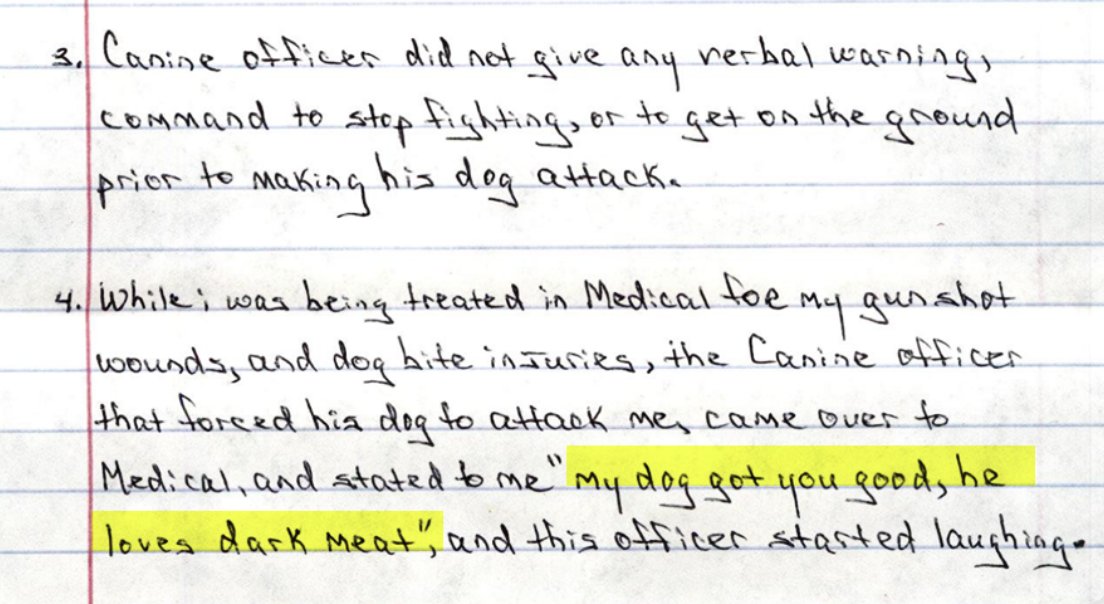 3. Canine officer did not give any verbal warning,
command to stop fighting, or to get on the ground
prior to making his dog attack.
4. While i was being treated in Medical foe my gunshot
wounds, and dog bite injuries, the Canine officer
that forced his dog to attack me, came over to
Medical, and stated to me "my dog got you good, he
loves dark meat", and this officer started laughing.